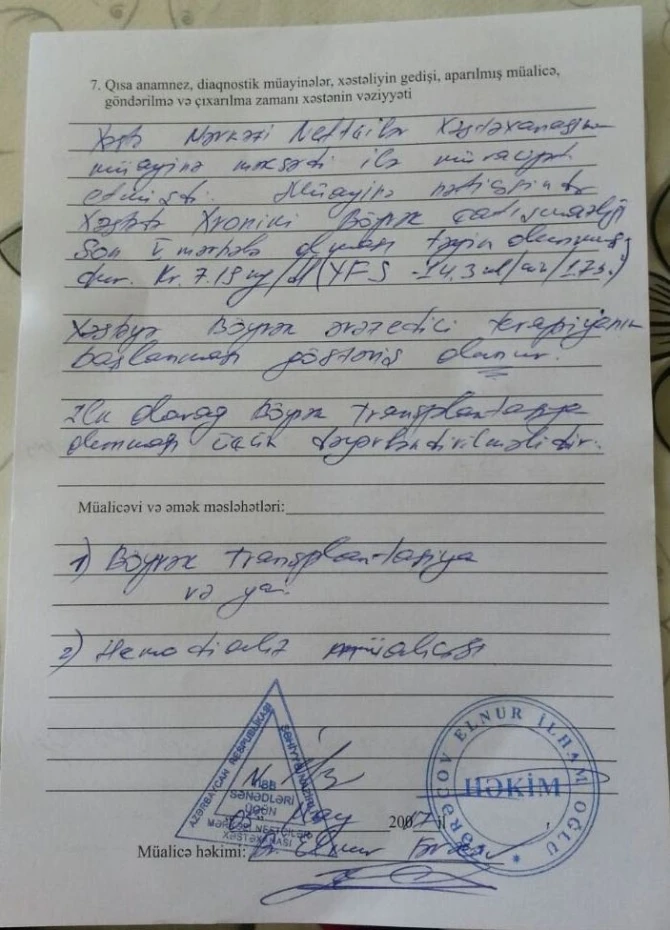 7. Qısa anamnez, diaqnostik müayinələr, xəstəliyin gedişi, aparılmış müalicə,
göndərilmə və çıxarılma zamanı xəstənin vəziyyəti
Xəstə Mərkəzi Neftçilər Xəstəxanasına
müayinə məksədi ilə müraciət
etmişdi. Müayinə nəticəsində
Xəstətə Xroniki Böyrək çatışmazlığı
Son V mərhələ olması təyin olunmuş
dur. Kr. 7.15 mg/dl (YFS -14,3 ml/
Xəstəyə Böyrək əvəzedici terapiyanın
başlanması göstəriş olunur.
İlk olarag Böyrək Transplantasiya
olunması üçün dəyərləndirilməlidir.
Müalicəvi və əmək məsləhətləri:
1) Böyrək Transplantasiya
və ya.
2) Hemodializ müalicəsi
AZƏRBAYCAN RESPUBLİKASI
SƏHİYYƏ NAZİRLİYİ
SƏNƏDLƏRİ
ÜÇÜN
MƏRKƏZİ NEFTÇİLƏR
XƏSTƏXANASI
ELNUR İLHAM OĞLU
HƏKİM
May 2017 il
Müalicə həkimi: Dr. Elnur